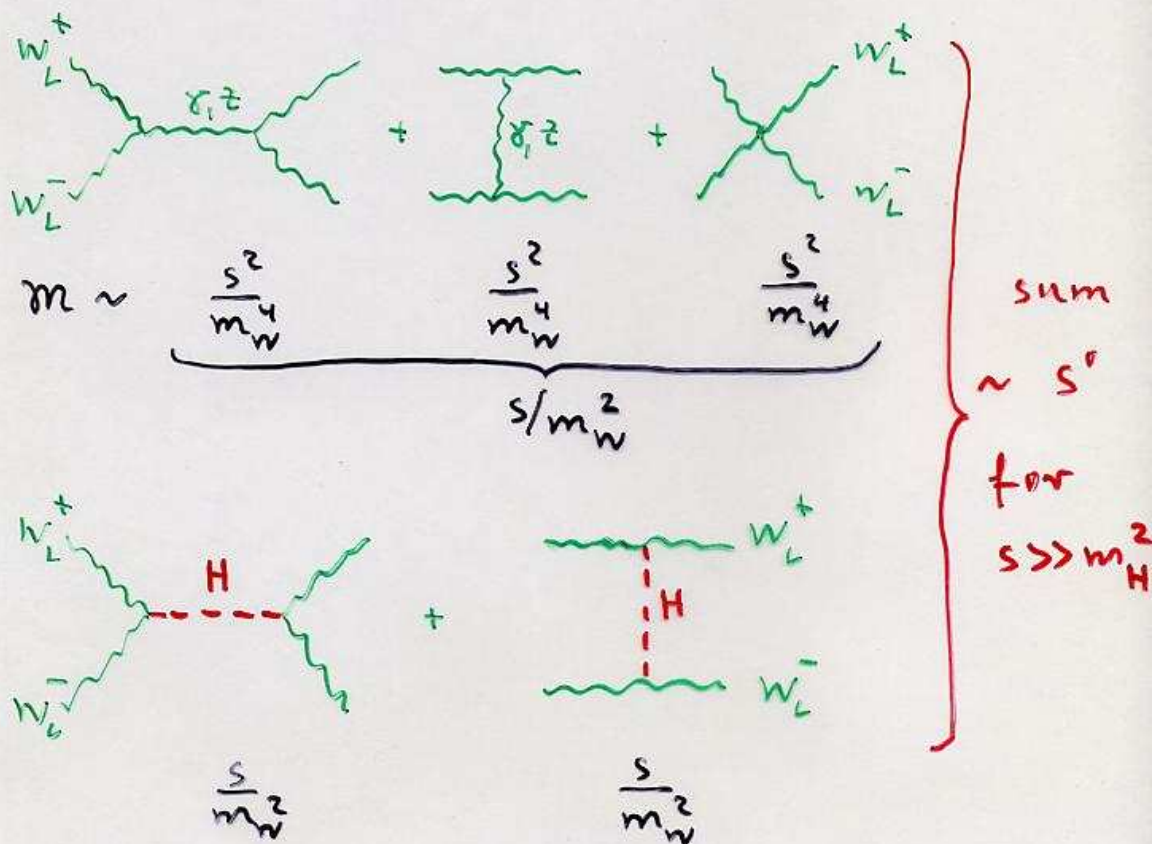 W_L^+ γ, Z + γ, Z + W_L^+
W_L^- W_L^-
m ~ s²/m_W⁴ s²/m_W⁴ s²/m_W⁴
s/m_W²
sum
~ s⁰
for
s>>m_H²
W_L^+ H + H W_L^+
W_L^- W_L^-
s/m_W² s/m_W²